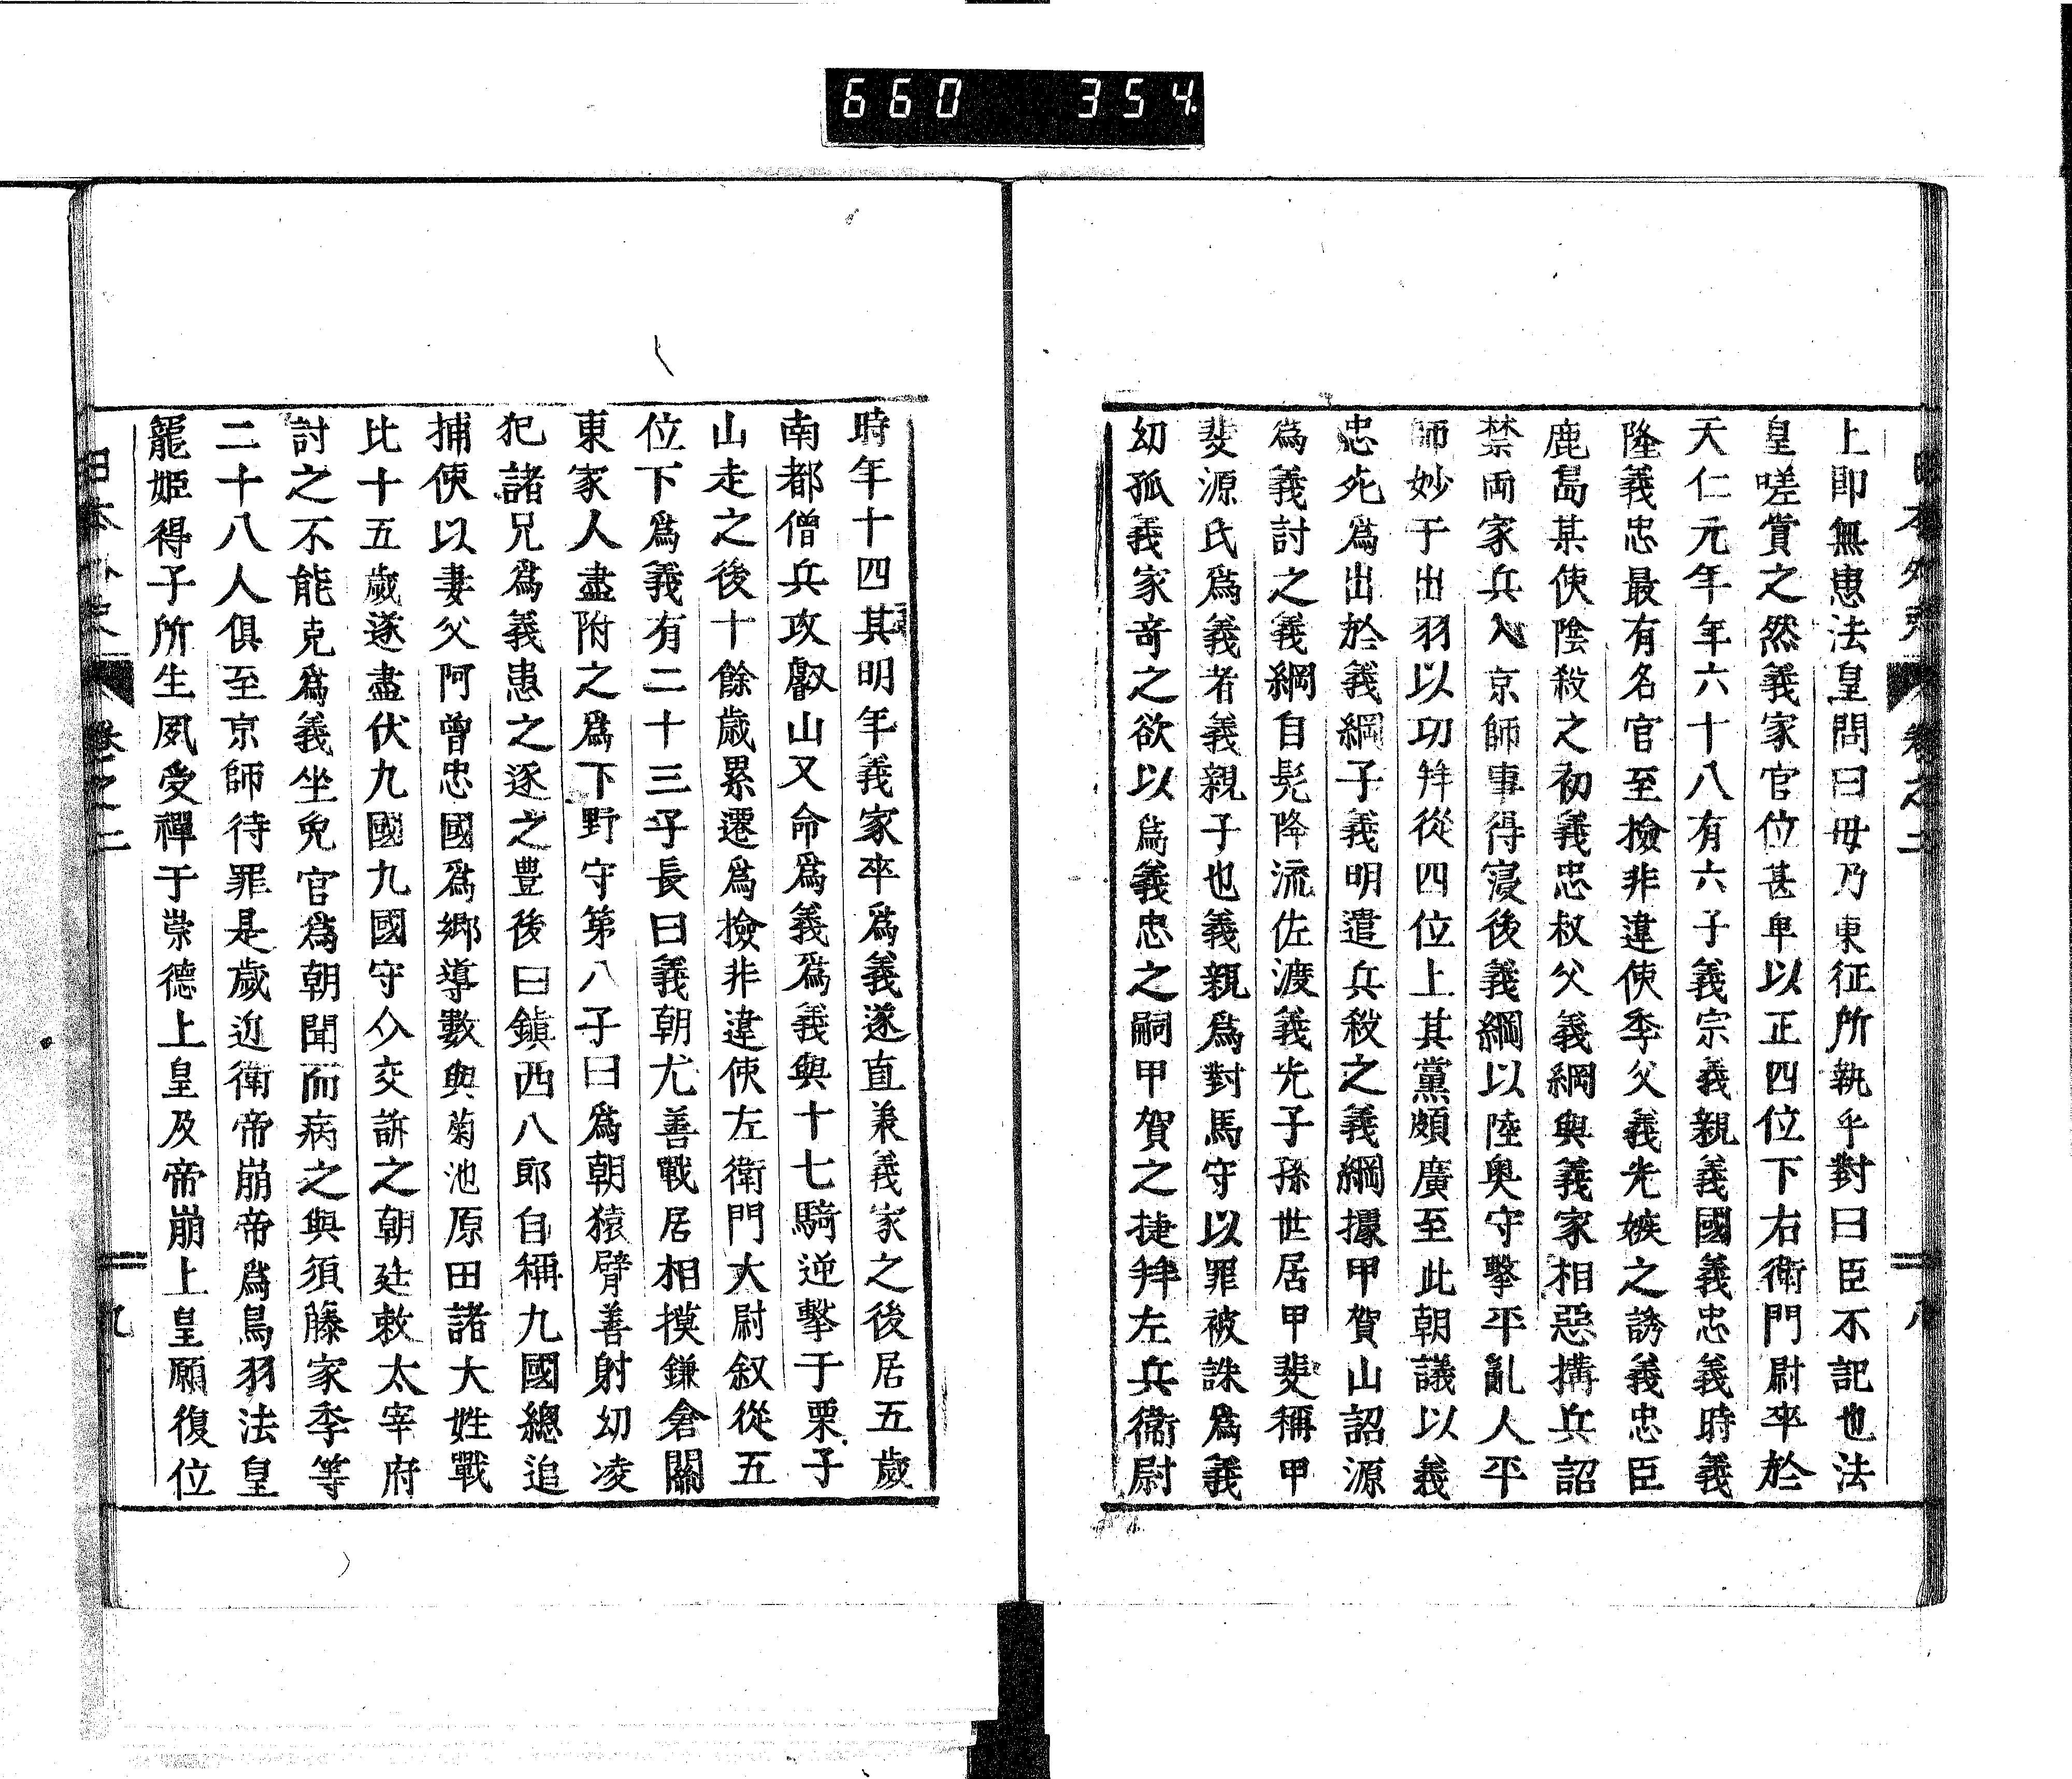 660 354
日本外史 卷之二 八
上即無患法皇問曰毋乃東征所執乎對曰臣不記也法
皇嗟賞之然義家官位甚卑以正四位下右衛門尉卒於
天仁元年年六十八有六子義宗義親義國義忠義時義
隆義忠最有名官至撿非違使季父義光嫉之誘義忠臣
鹿島某使陰殺之初義忠叔父義綱與義家相惡搆兵詔
禁両家兵入京師事得寢後義綱以陸奥守擊平亂人平
師妙于出羽以功拜從四位上其黨頗廣至此朝議以義
忠死為出於義綱子義明遣兵殺之義綱據甲賀山詔源
為義討之義綱自髡降流佐渡義光子孫世居甲斐稱甲
斐源氏為義者義親子也義親為對馬守以罪被誅為義
幼孤義家奇之欲以為義忠之嗣甲賀之捷拜左兵衛尉
時年十四其明年義家卒為義遂直兼義家之後居五歲
南都僧兵攻叡山又命為義為義與十七騎逆擊于栗子
山走之後十餘歲累遷為撿非違使左衛門大尉叙從五
位下為義有二十三子長曰義朝尤善戰居相摸鎌倉關
東家人盡附之為下野守第八子曰為朝猿臂善射幼凌
犯諸兄為義患之逐之豊後曰鎭西八郎自稱九國總追
捕使以妻父阿曾忠國為郷導數與菊池原田諸大姓戰
比十五歲遂盡伏九國九國守介交訴之朝廷敕太宰府
討之不能克為義坐免官為朝聞而病之與須藤家季等
二十八人俱至京師待罪是歲近衛帝崩帝為鳥羽法皇
寵姬得子所生夙受禪于崇德上皇及帝崩上皇願復位
日本外史 卷之二 九